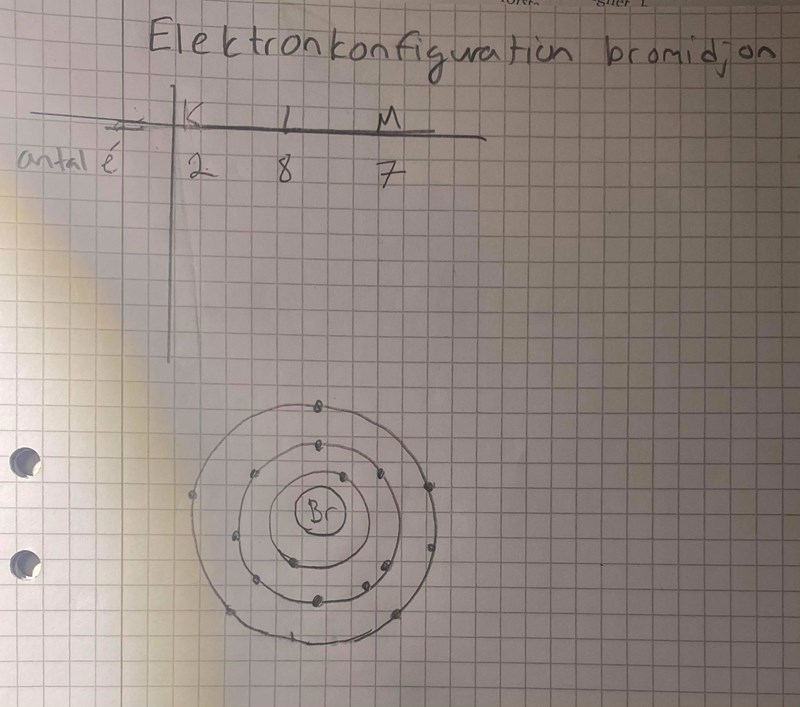 Elektronkonfiguration bromidjon
K L M
antal é 2 8 7
Br